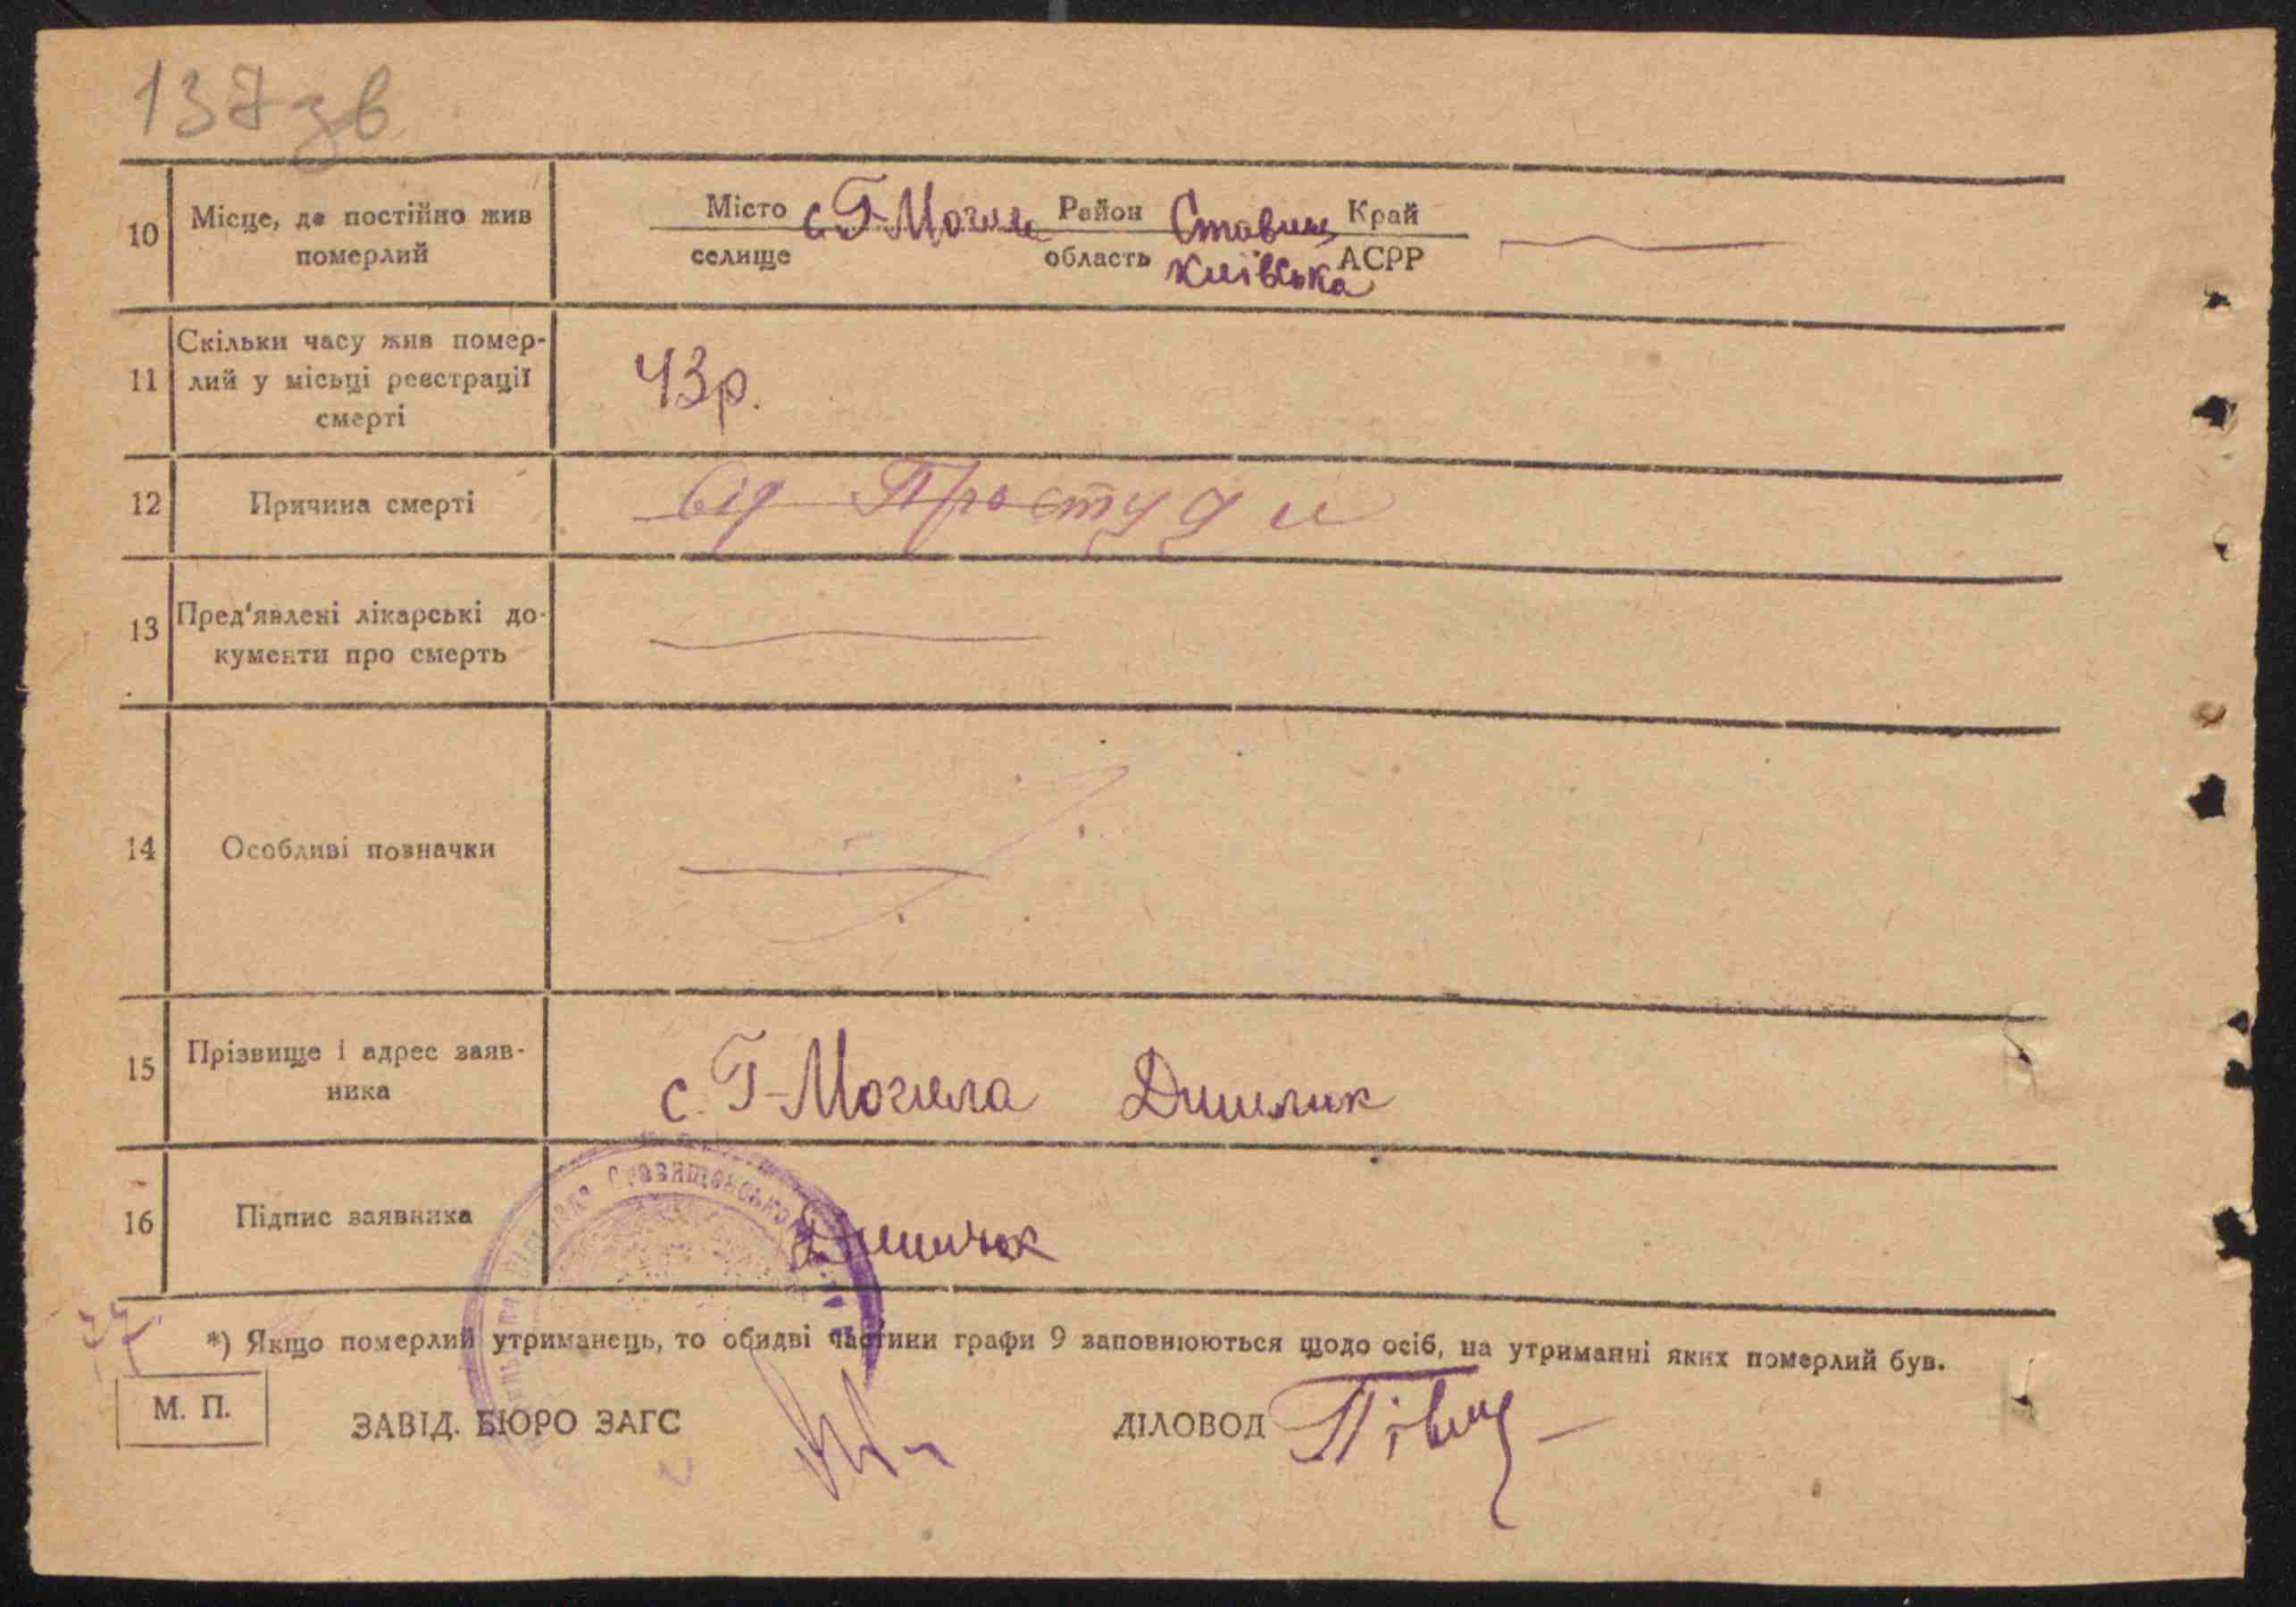 137зв
10 Місце, де постійно жив померлий
Місто с. Г-Могила Район Ставищ Край
селище область Київська АСРР
11 Скільки часу жив помер-
лий у місьці реєстрації
смерті
43р.
12 Причина смерті від Простуди
13 Пред'явлені лікарські до-
кументи про смерть
14 Особливі позначки
15 Прізвище і адрес заяв-
ника
с. Г-Могила Дишлюк
16 Підпис заявника Дишлюк
Ставищенсько
*) Якщо померлий утриманець, то обидві частини графи 9 заповнюються щодо осіб, на утриманні яких померлий був.
М. П.
ЗАВІД. БЮРО ЗАГС
ДІЛОВОД